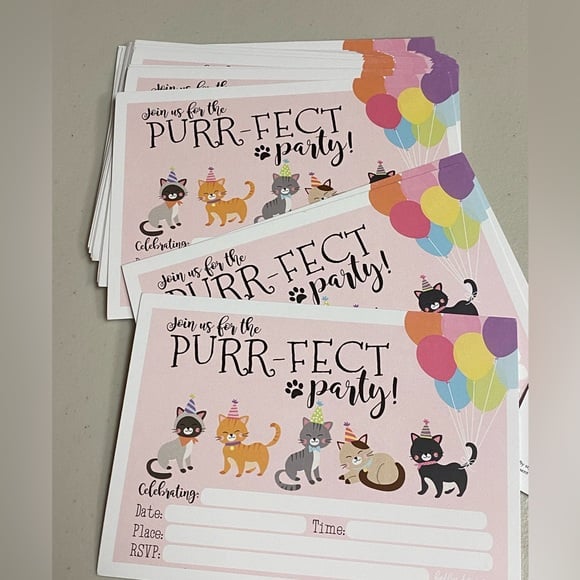 Join us for the
PURR-FECT
party!
Celebrating:
Join us for the
PURR-FECT
party!
Join us for the
PURR-FECT
party!
Celebrating:
Date:
Time:
Place:
RSVP: